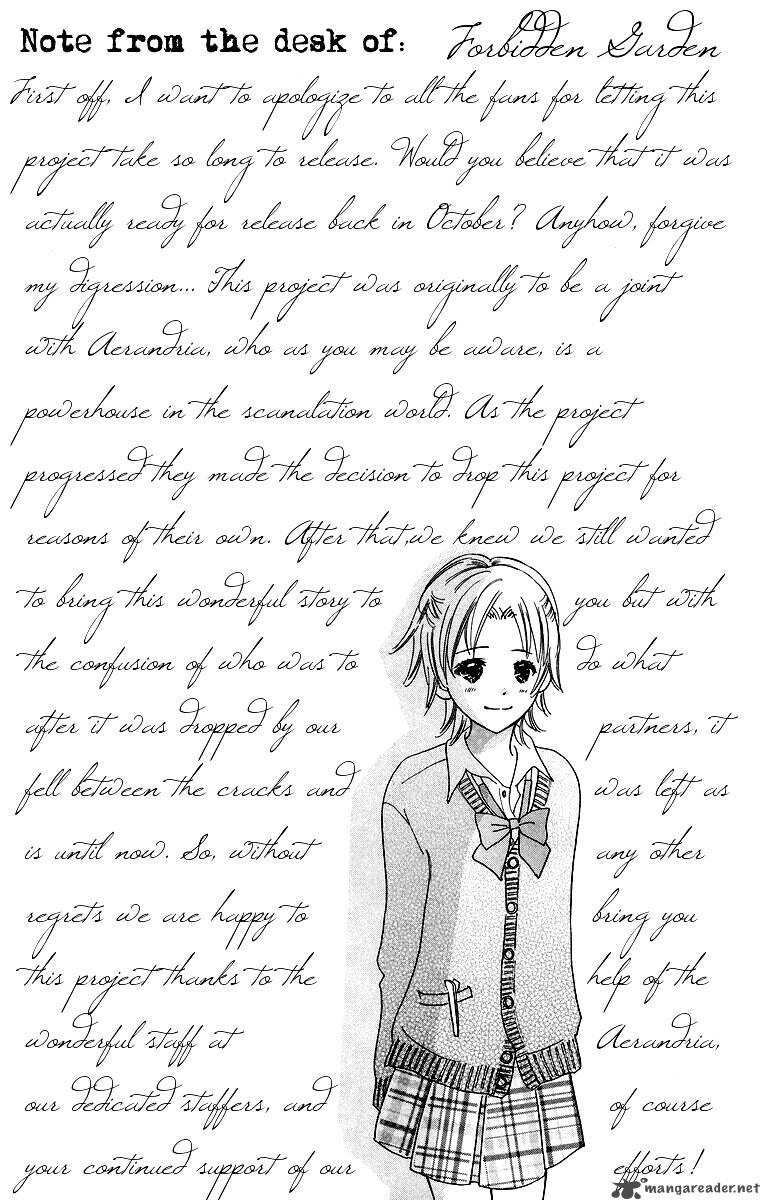 Note from the desk of: Forbidden Garden
First off, I want to apologize to all the fans for letting this
project take so long to release. Would you believe that it was
actually ready for release back in October? Anyhow, forgive
my digression... This project was originally to be a joint
with Aerandria, who as you may be aware, is a
powerhouse in the scanalation world. As the project
progressed they made the decision to drop this project for
reasons of their own. After that,we knew we still wanted
to bring this wonderful story to you but with
the confusion of who was to do what
after it was dropped by our partners, it
fell between the cracks and was left as
is until now. So, without any other
regrets we are happy to bring you
this project thanks to the help of the
wonderful staff at Aerandria,
our dedicated staffers, and of course
your continued support of our efforts!
mangareader.net